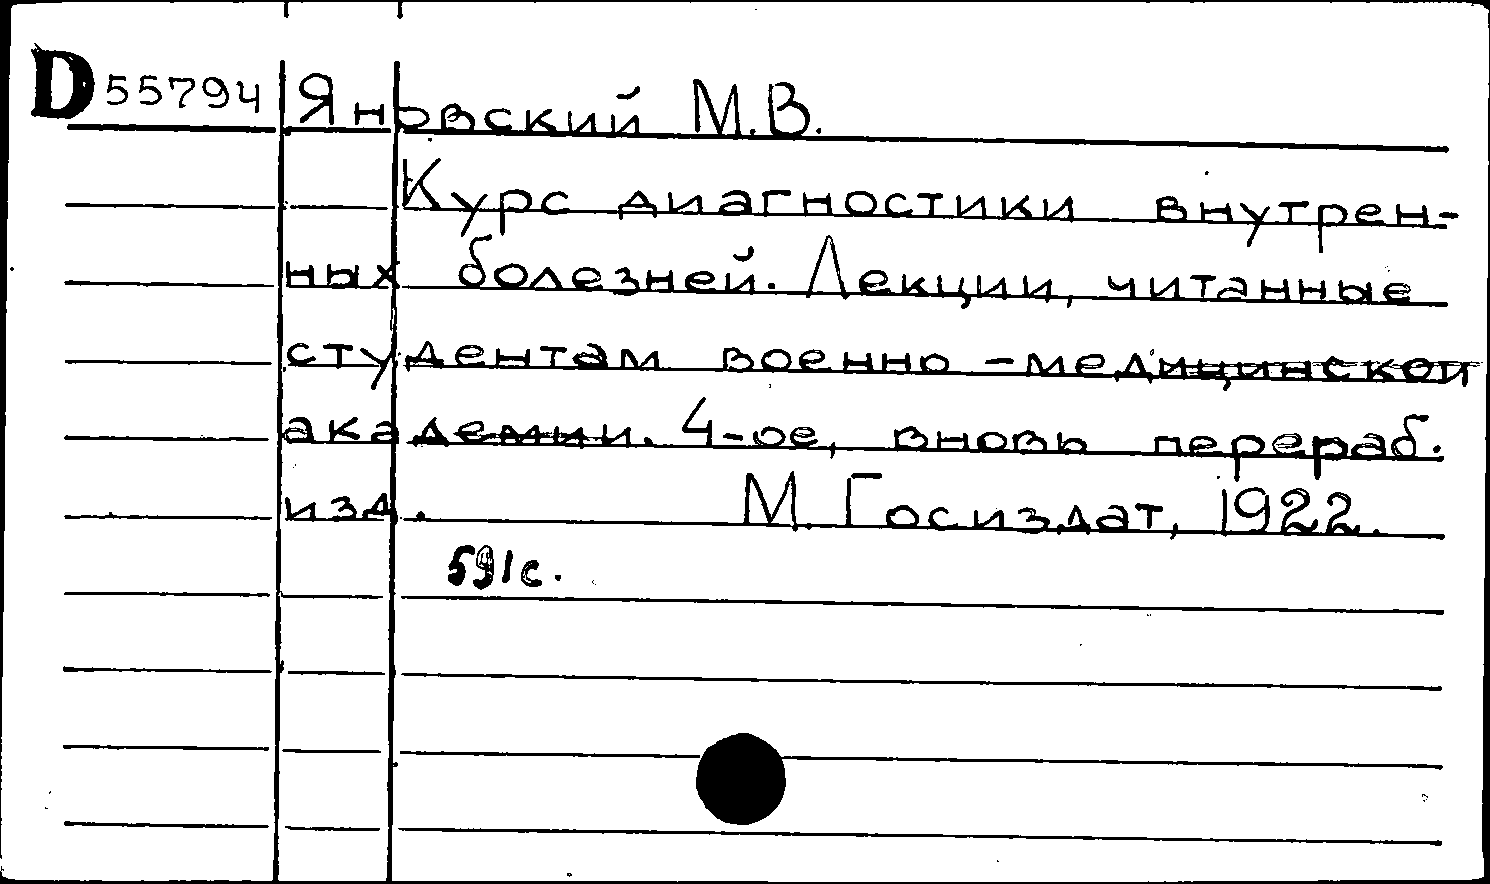 D 55794 Яновский М.В.
Курс диагностики внутрен-
ных болезней. Лекции, читанные
студентам военно-медицинской
академии. 4-ое, вновь перераб.
изд. М. Госиздат, 1922.
591с.